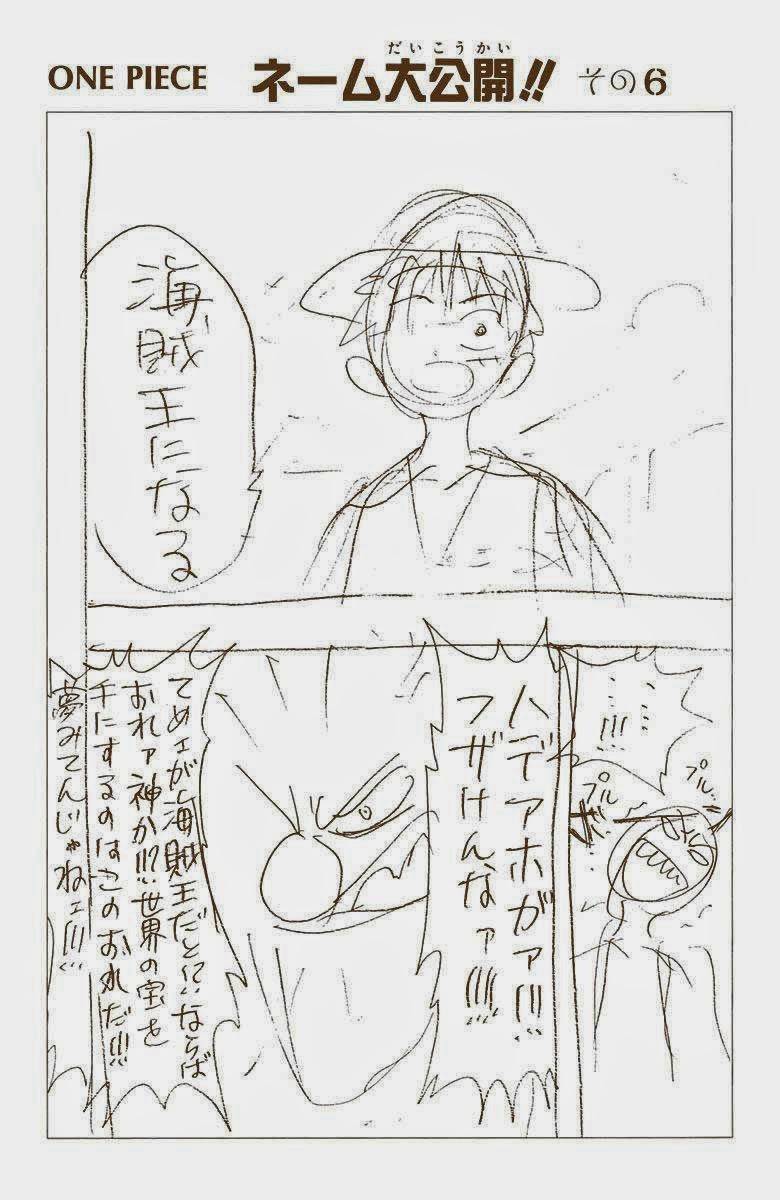 ONE PIECE ネーム大公開!! その6
だいこうかい
海賊
王に
なる
……!!!
プル…
プル
ハデアホがァ!!!
フザけんなァ!!!!
てめェが海賊王だと!?ならば
おれァ神か!!?世界の宝を
手にするのはこのおれだ!!!
夢みてんじゃねェ!!!